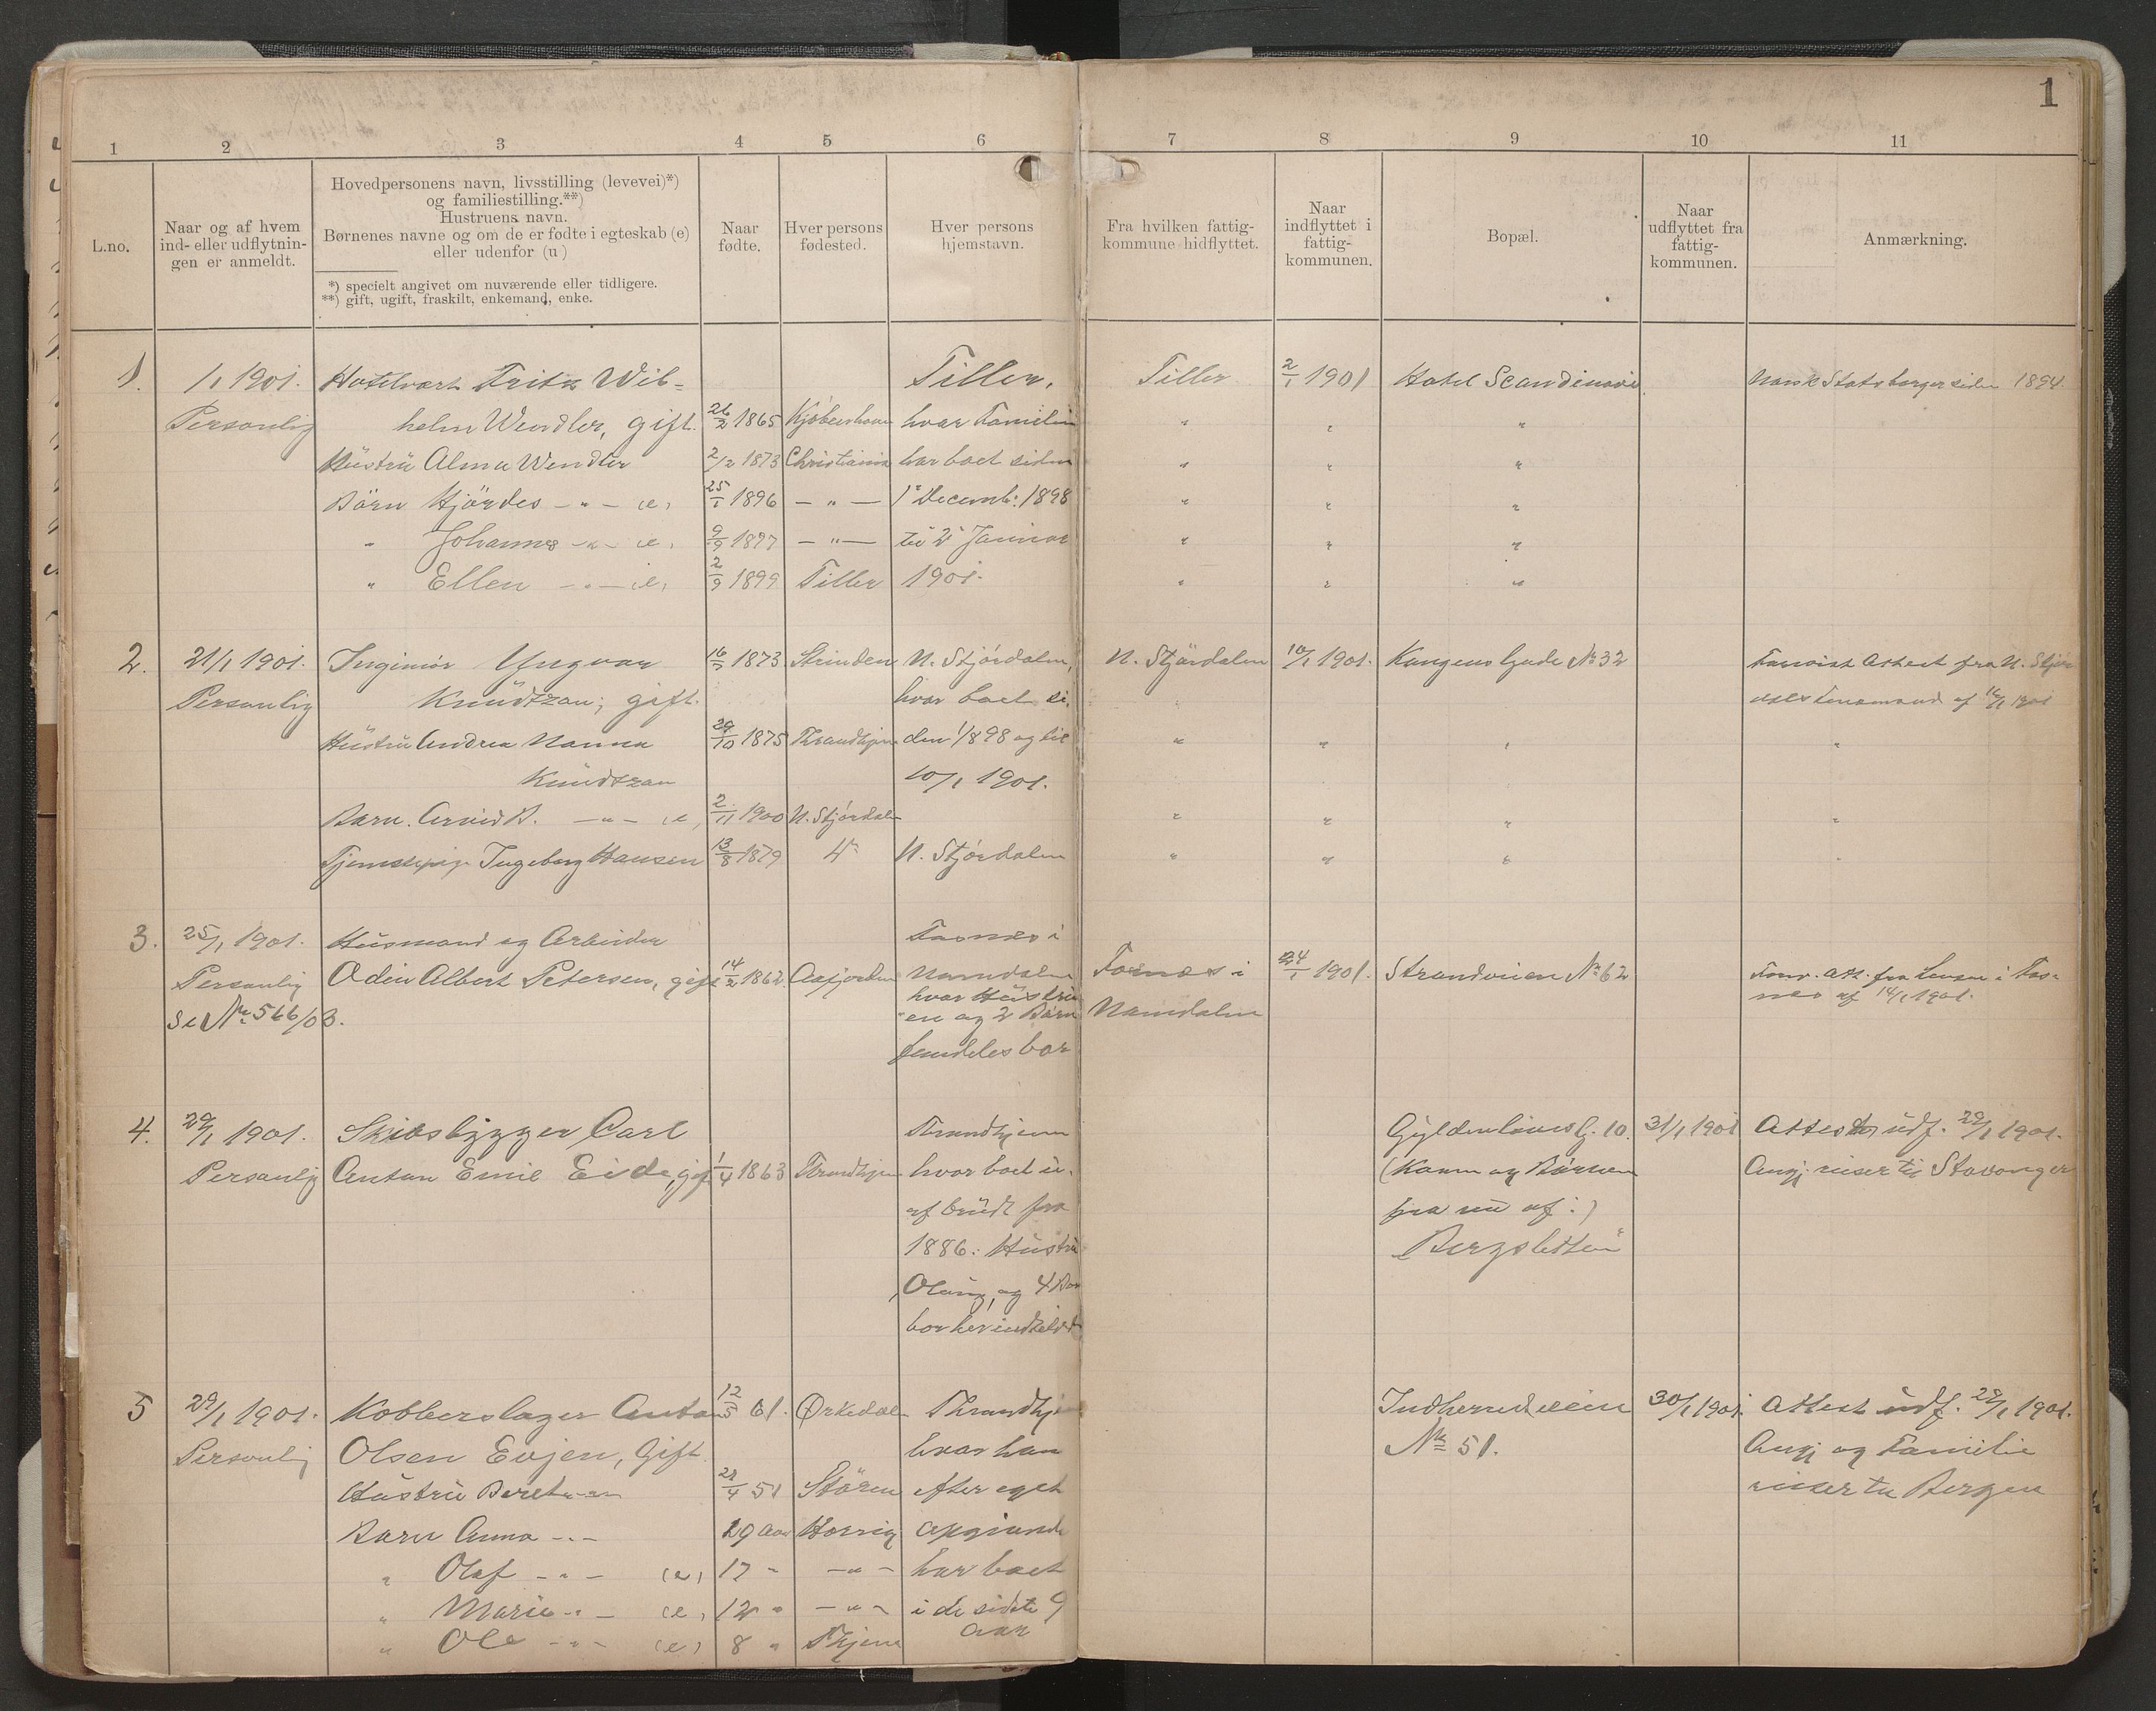 1
1 2 3 4 5 6 7 8 9 10 11
L.no.
Naar og af hvem
ind- eller udflytnin-
gen er anmeldt.
Hovedpersonens navn, livsstilling (levevei)*)
og familiestilling.**)
Hustruens navn.
Børnenes navne og om de er fødte i egteskab (e)
eller udenfor (u)
*) specielt angivet om nuværende eller tidligere.
**) gift, ugift, fraskilt, enkemand, enke.
Naar
fødte.
Hver persons
fødested.
Hver persons
hjemstavn.
Fra hvilken fattig-
kommune hidflyttet.
Naar
indflyttet i
fattig-
kommunen.
Bopæl.
Naar
udflyttet fra
fattig-
kommunen.
Anmærkning.
1. 1/1 1901. Hotelvært Fritz Wil- Tiller, Tiller 2/1 1901 Hotel Scandinavie Norsk Statsborger siden 1894.
Personlig helm Wendler, gift. 26/2 1865 Kjöbenhavn hvor Familien " " "
Hüstrü Alma Wendler 2/2 1873 Christiania har boet siden " " "
Börn Hjördes - " - (e) 25/1 1896 - " - 1' Decemb: 1898 " " "
" Johannes - " - (e) 9/9 1897 - " - til 2' Januar " " "
" Ellen - " - (e) 2/9 1899 Tiller 1901. " " "
2. 21/1 1901. Ingeniör Yngvar 1873 Strinden N. Stjördalen, N. Stjördalen 10/1 1901. Kongens Gade No 32 Forevist Attest fra N. Stjör
Personlig Knüdtzon; gift. hvor boet si- Lensmand af 1901
Hüstrü Andrea Nanna 29/10 1875 Throndhjem den 1/8 98 og til " " " "
Knüdtzon 10/1 1901.
Barn. Arvid B. - " - (e) 2/11 1900 N. Stjördalen " " " "
Tjenestepige Ingeborg Hansen 13/8 1879 N. Stjördalen " " " "
3. 25/1 1901. Hüsmand og Arbeider Fosnes i
Personlig Odin Albert Petersen, gift 14/2 1862 Aafjorden Namdalen Fosnes i 24/1 1901. Strandveien No 62 Forev. Att. fra Lensm i Fos-
Se No 566/03. hvor Hüstrü- Namdalen nes af 14/1 1901.
en og 2 Börn
fremdeles bor
4. 29/1 1901. Skibsbygger Carl Throndhjem Gyldenlöves G. 10. 31/1 1901 Attest udf. 29/1 1901.
Personlig Anton Emil Eide, gift 1/4 1863 Throndhjem hvor boet u- (Konen og Börnene Angj. reiser til Stavanger
afbrüdt fra fra nü af:)
1886. Hüstrü Bergsletten
Olüng, og 4 Börn
bor her
5 29/1 1901. Kobberslager Anton 12/5 61. Ørkedalen Throndhjem Indherredsveien 30/1 1901. Attest üdf. 29/1 1901.
Personlig Olsen Evjen, Gift. hvor han No 51. Angj og Familie
Hüstrü Beret - " - 4 51 Stören efter eget reiser til Bergen
Barn Anna - " - 19 Aar Horrig opgivende
" Olaf - " - (e) 17 " - " - har boet
" Marie - " - (e) 12 " - " - i de sidste 9
" Ole - " - (e) 8 " Thjem Aar